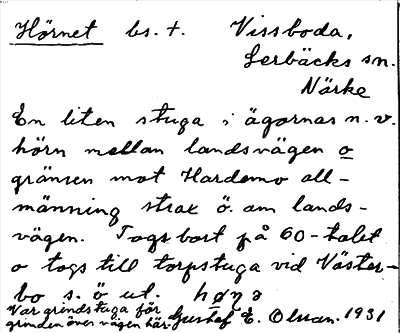 Hörnet bs. t. Vissboda,
Lerbäcks sn.
Närke
En liten stuga i ägornas n. v.
hörn mellan landsvägen o
gränsen mot Hardemo all-
männing strax ö. om lands-
vägen. Togs bort på 60-talet
o togs till torpstuga vid Väster-
bo s. ö ut. hǿṇa
Var grindstuga för
grinden över vägen här. Gustaf E. Olsson. 1931